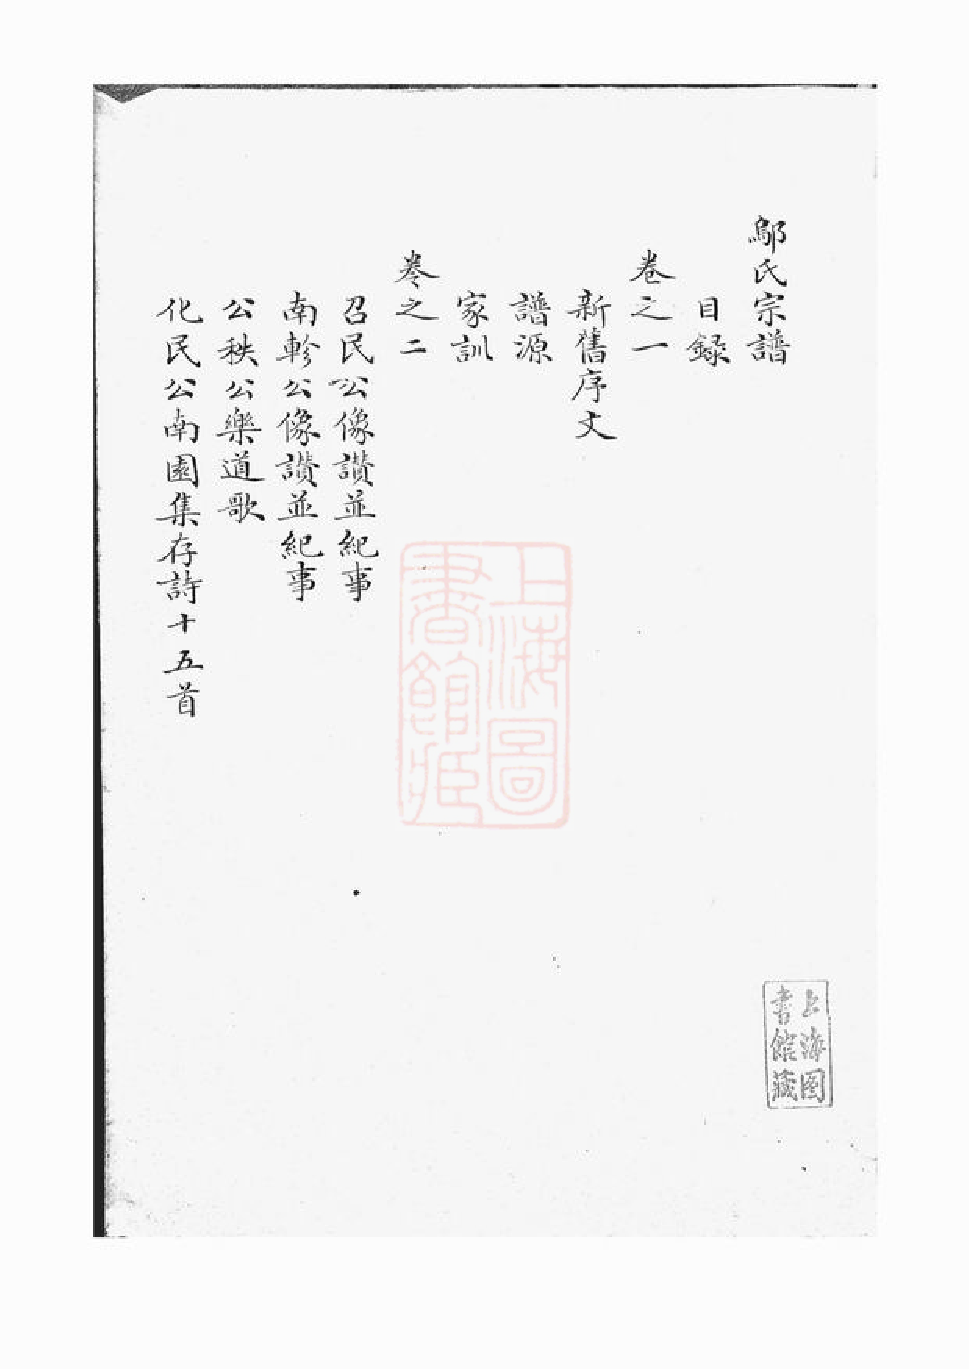 鄔氏宗譜
目錄
卷之一
新舊序文
譜源
家訓
卷之二
召民公像讚並紀事
南軫公像讚並紀事
公秩公樂道歌
化民公南園集存詩十五首
上海圖
書館藏
上海图
書館藏